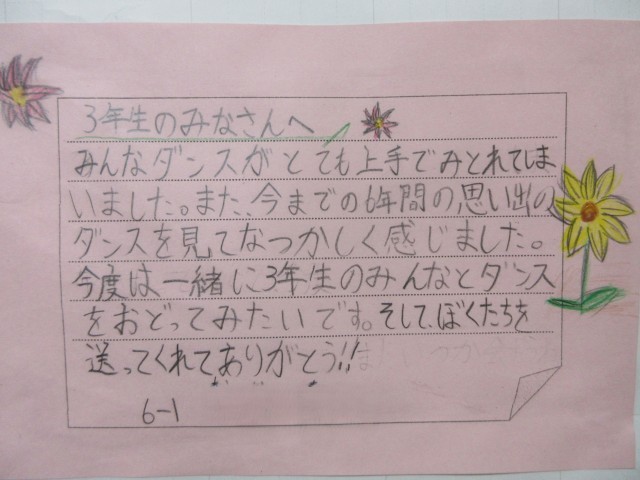 3年生のみなさんへ
みんなダンスがとても上手でみとれてしま
いました。また、今までの6年間の思い出の
ダンスを見てなつかしく感じました。
今度は一緒に3年生のみんなとダンス
をおどってみたいです。そして、ぼくたちを
送ってくれてありがとう!!
6-1